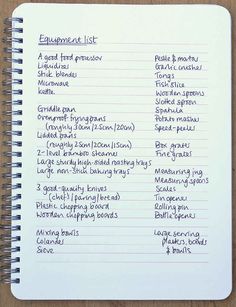 Equipment list
A good food processor
Liquidiser
Stick blender
Microwave
Kettle
Griddle pan
Ovenproof frying pans
(roughly 30cm/25cm/20cm)
Lidded pans
(roughly 25cm/20cm/15cm)
2-level bamboo steamer
Large sturdy high-sided roasting trays
Large non-stick baking trays
3 good-quality knives
(chef's/paring/bread)
Plastic chopping board
Wooden chopping boards
Mixing bowls
Colander
Sieve
Pestle & mortar
Garlic crusher
Tongs
Fish slice
Wooden spoons
Slotted spoon
Spatula
Potato masher
Speed-peeler
Box grater
Fine grater
Measuring jug
Measuring spoons
Scales
Tin opener
Rolling pin
Bottle opener
Large serving
platters, boards
& bowls